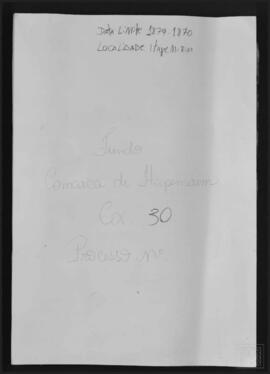 Data Limite 1879-1870
LOCALIDADE Itapemirim
Fundo
Comarca de Itapemirim
Cx. 30
Processo nº